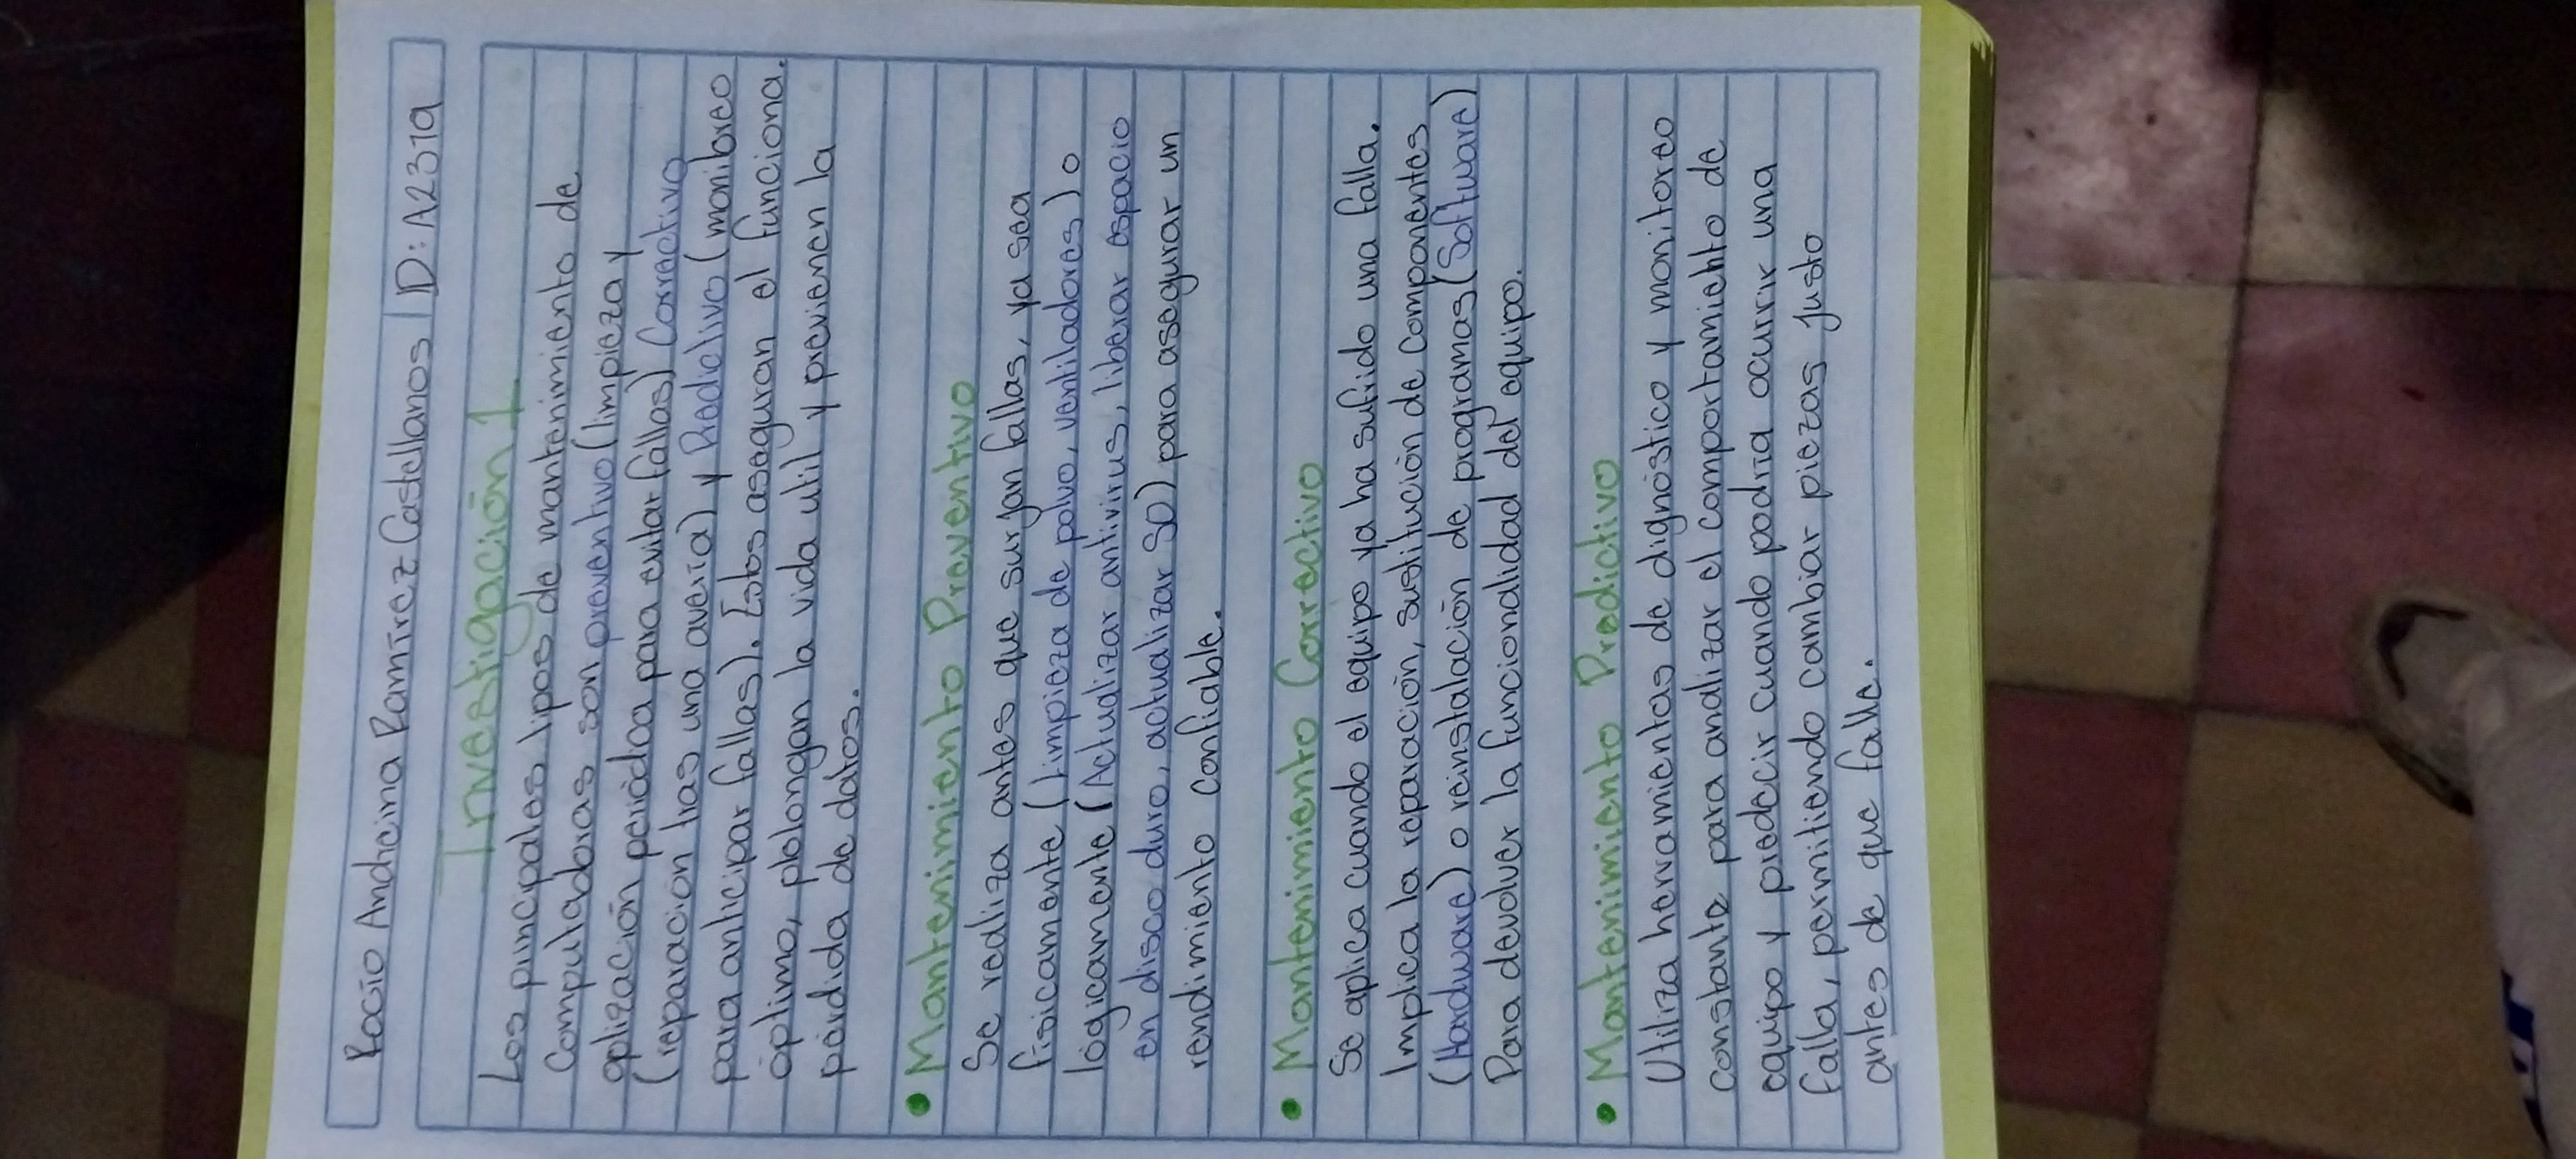 Rocío Andreina Ramírez Castellanos | ID: A2319
Investigación 1
Los principales tipos de mantenimiento de
computadoras son preventivo (limpieza y
aplización periódoa para evitar fallas) Correctivo
(reparación tras una avería) y Predictivo (monibreo
para anticipar fallas). Estos aseguran el funciona.
óptimo, plolongan la vida util y previenen la
pérdida de datos.
• Mantenimiento Preventivo
Se realiza antes que surjan fallas, ya sea
fisicamente (Limpieza de polvo, ventiladores) o
lógicamente (Actualizar antivirus, liberar espacio
en disco duro, actualizar SO) para asegurar un
rendimiento confiable.
• Mantenimiento Correctivo
Se aplica cuando el equipo ya ha sufrido una falla.
Implica la reparación, sustitución de componentes
(Hardware) o reinstalación de programas (Software)
Para devolver la funcionalidad del equipo.
• Mantenimiento Predictivo
Utiliza herramientas de dignóstico y monitoreo
constante para analizar el comportamiehto de
equipo y predecir cuando podría ocurrir una
falla, permitiendo cambiar piezas justo
antes de que falle.